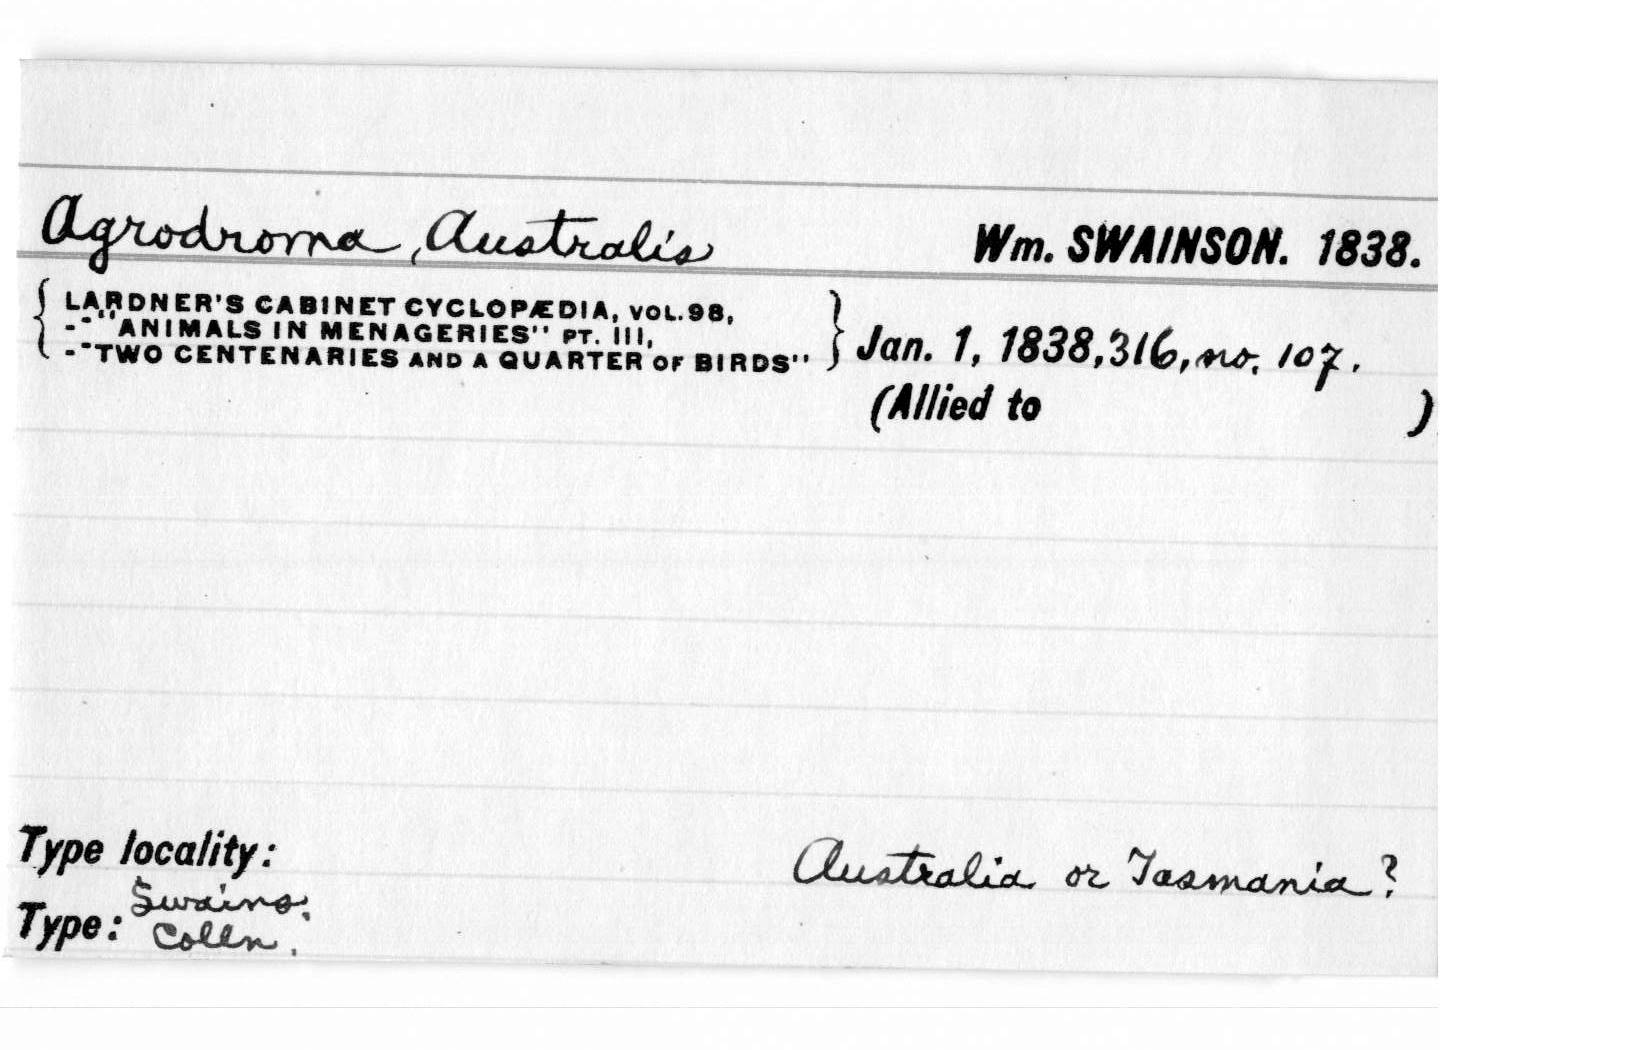 Agrodroma, Australis Wm. SWAINSON. 1838.
{ LARDNER'S CABINET CYCLOPÆDIA, VOL. 98,
-"ANIMALS IN MENAGERIES" PT. III,
-"TWO CENTENARIES AND A QUARTER OF BIRDS" } Jan. 1, 1838, 316, no. 107.
(Allied to )
Type locality: Australia or Tasmania?
Type: Swains. Colln.